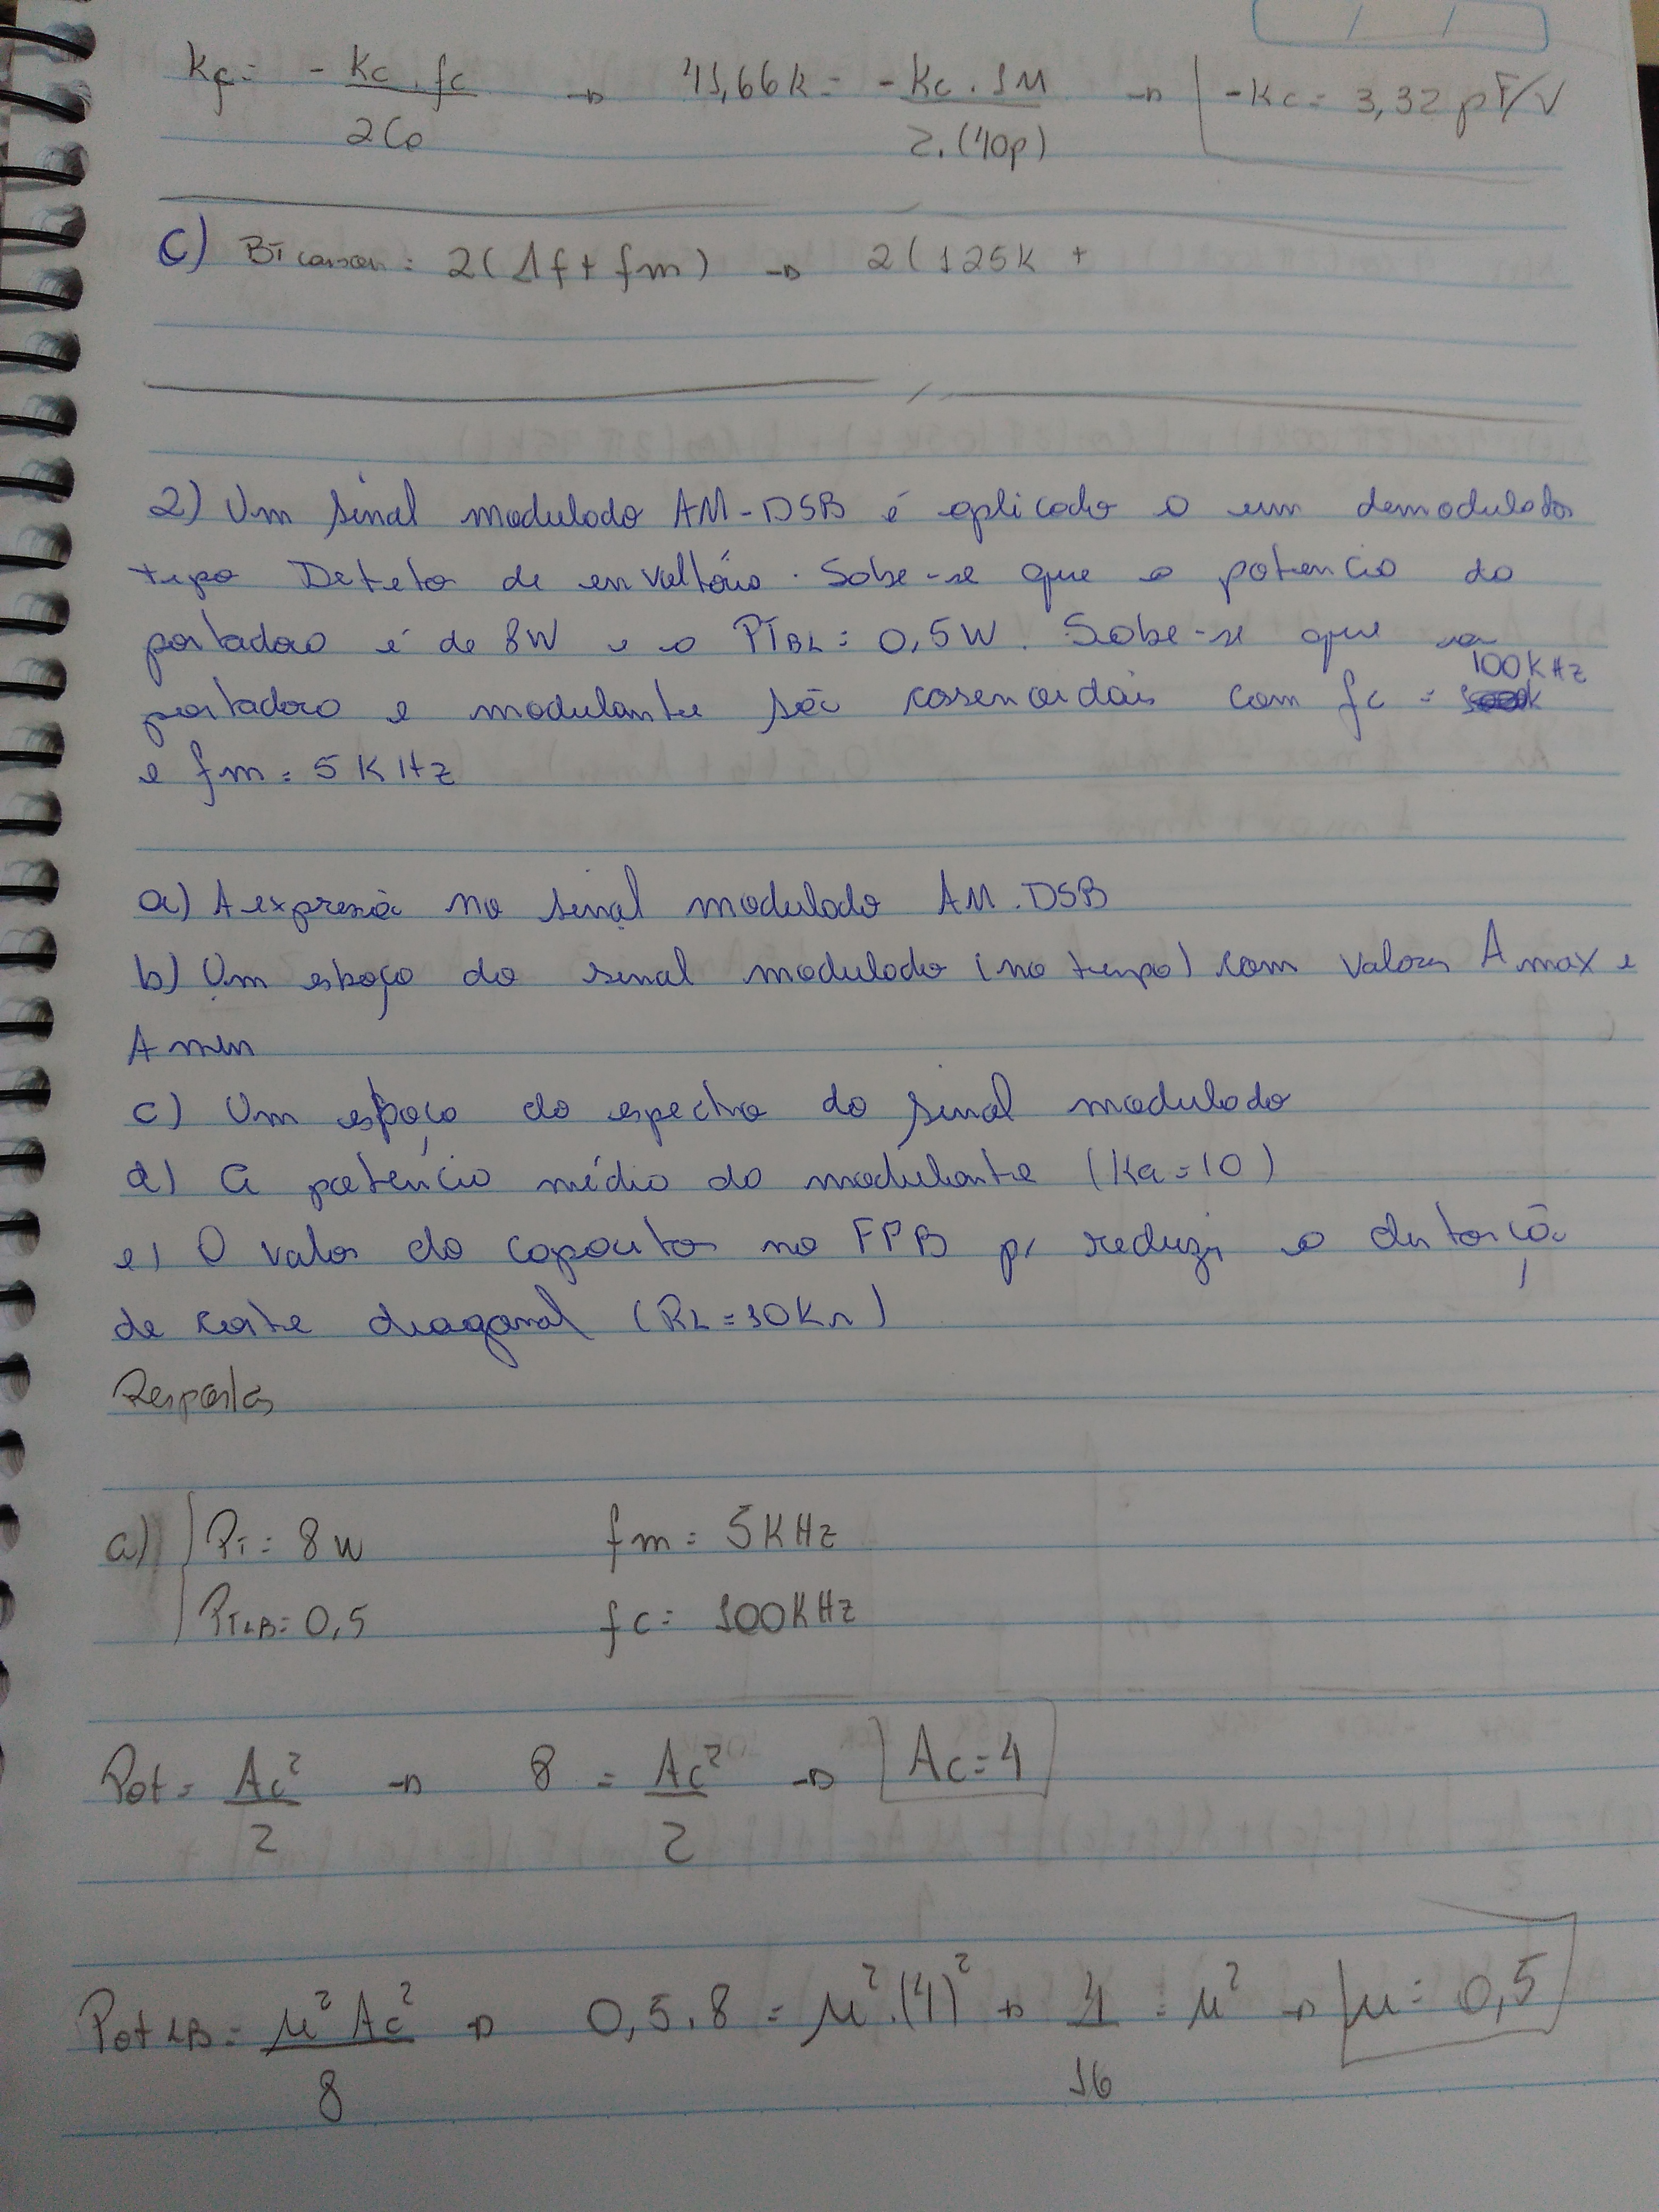 Kf = - Kc . fc / 2Co → 41,66k = - Kc . 1M / 2.(40p) → -Kc = 3,32 pF/V
C) BT carson = 2(Δf + fm) → 2(125K +
2) Um sinal modulado AM-DSB é aplicado a um demodulador
tipo Deteto de envoltória. Sabe-se que a potencia da
portadora é de 8W e a PTBL = 0,5W. Sabe-se que a
portadora e modulante são cossenoidais com fc = 100KHz
e fm = 5KHz
a) A expressão no sinal modulado AM.DSB
b) Um esboço do sinal modulado (no tempo) com valores Amax e
Amin
c) Um esboço do espectro do sinal modulado
d) A potência média da modulante (Ka=10)
e) O valor do capacitor no FPB p/ reduzir a distorção
de corte diagonal (RL=10KΩ)
Respostas
a) PT = 8W fm = 5KHz
PTLB = 0,5 fc = 100KHz
Pot = Ac² / 2 → 8 = Ac² / 2 → Ac = 4
Pot LB = μ² Ac² / 8 → 0,5.8 = μ².(4)² → 4 / 16 = μ² → μ = 0,5